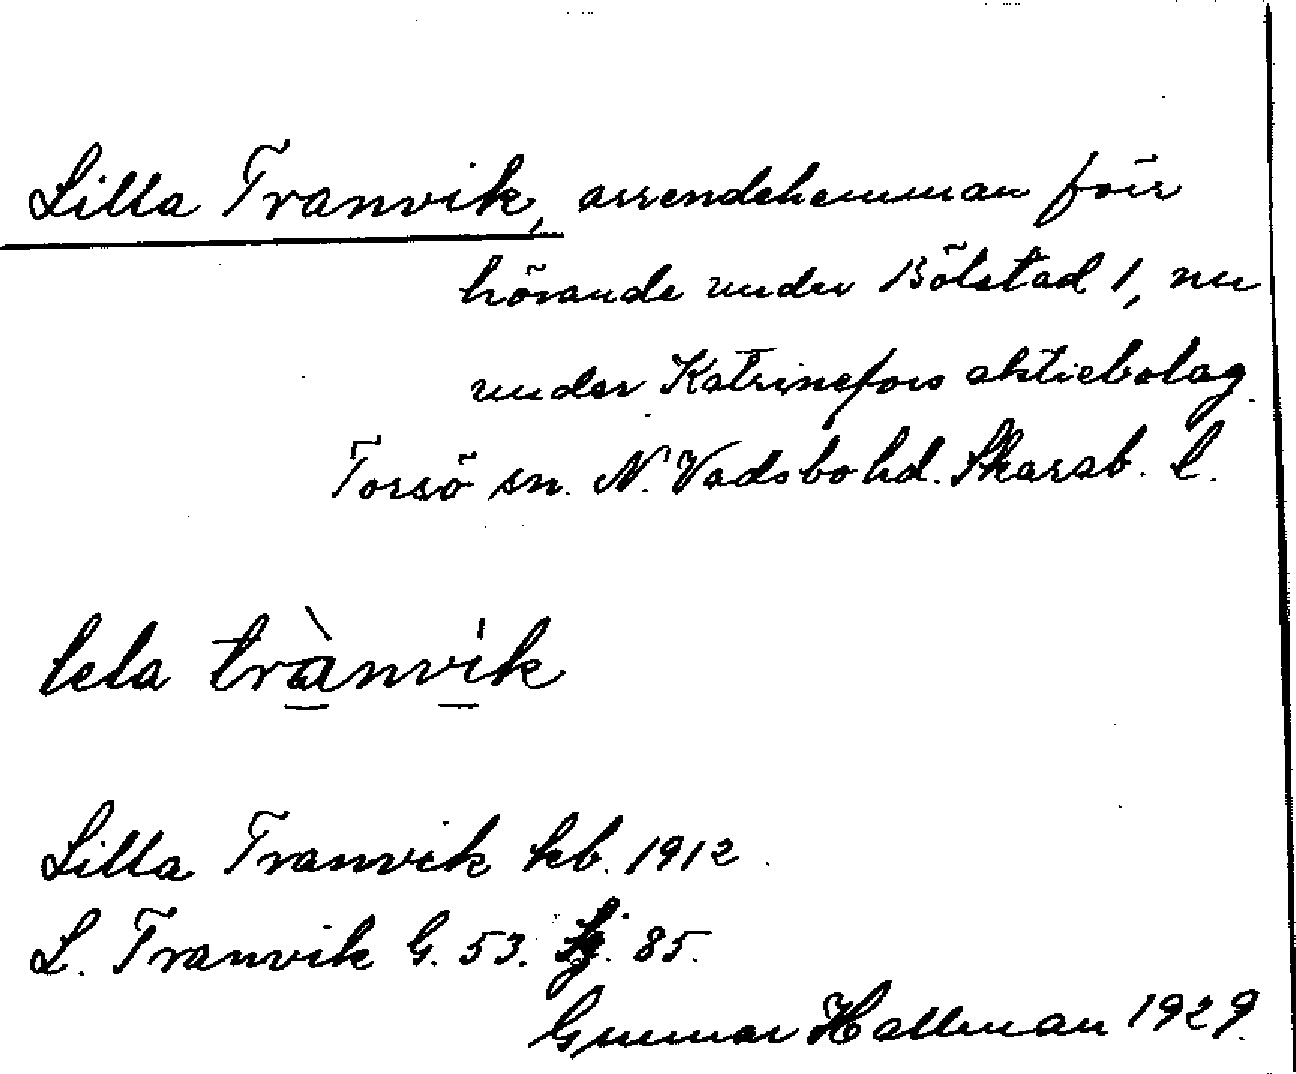 Lilla Tranvik, arrendehemman före
hörande under Bölstad 1, nu
under Katrinefors aktiebolag.
Torsö sn. N. Vadsbo hd. Skarab. l.
lela trànvik
Lilla Tranvik kb. 1912.
L. Tranvik G. 53. Lj. 85.
Gunnar Hallman 1929.